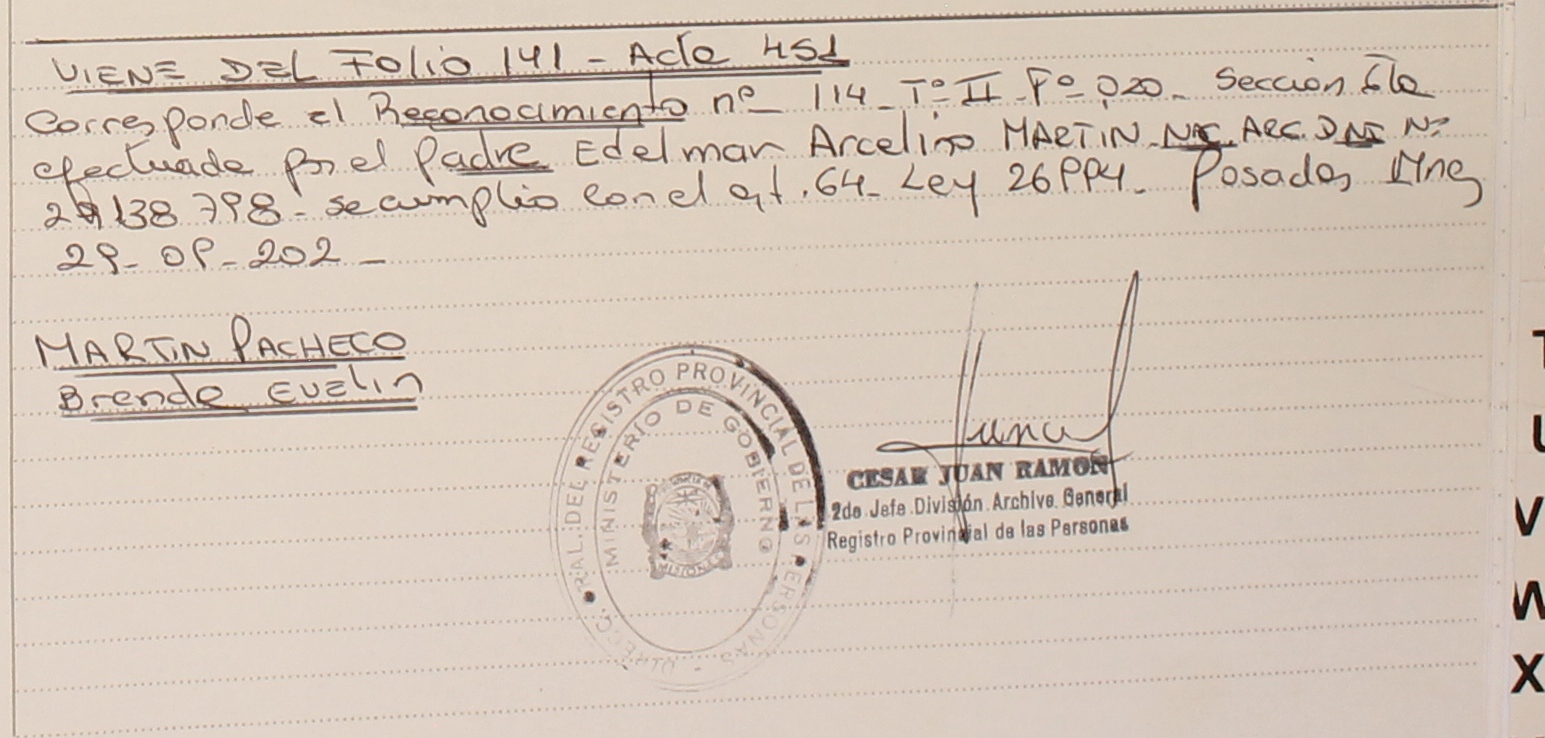 VIENE DEL FOLIO 141 - Acta 451
Corresponde el Reconocimiento nº 114 - Tº II - Fº 020 - Sección 6ta
efectuada por el Padre Edelmar Arcelino MARTIN NAC. ARG. DNI Nº
138 798 - se cumplio con el art. 64 - Ley 26994 - Posadas Mnes
29 - 09 - 202 -
MARTIN PACHECO
Brenda Evelin
DIRECC. GRAL. DEL REGISTRO PROVINCIAL DE LAS PERSONAS -
MINISTERIO DE GOBIERNO
MISIONES
CESAR JUAN RAMON
2do Jefe División Archivo General
Registro Provincial de las Personas
T
U
V
W
X